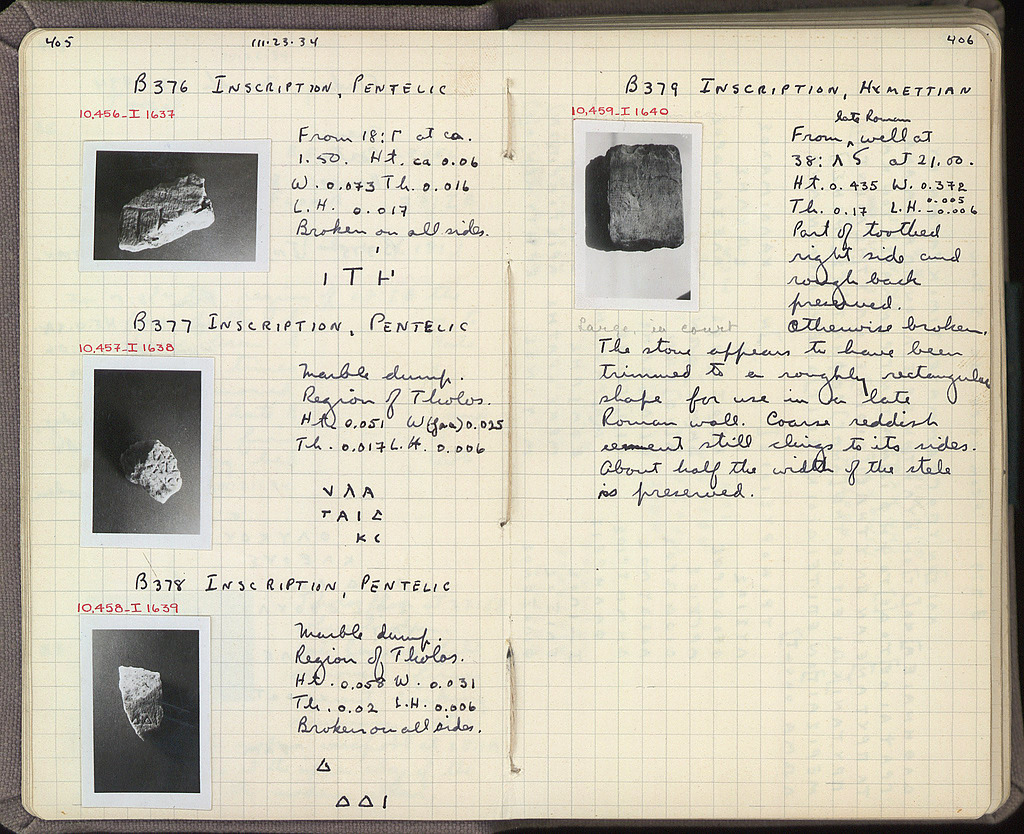 405
III·23·34
B376 INSCRIPTION, PENTELIC
10,456-I 1637
From 18:Γ at ca.
1.50. Ht. ca 0.06
W. 0.073 Th. 0.016
L.H. 0.017
Broken on all sides.
Ι Τ Η
B377 INSCRIPTION, PENTELIC
10,457-I 1638
Marble dump.
Region of Tholos.
Ht. 0.051 W(face) 0.025
Th. 0.017 L.H. 0.006
V Λ Α
Τ Α Ι Σ
Κ C
B378 INSCRIPTION, PENTELIC
10,458-I 1639
Marble dump.
Region of Tholos.
Ht. 0.058 W. 0.031
Th. 0.02 L.H. 0.006
Broken on all sides.
Δ
Δ Δ Ι
406
B379 INSCRIPTION, HYMETTIAN
10,459-I 1640
late Roman
From ‸ well at
38: Λ Ϛ at 21.00.
Ht. 0.435 W. 0.372
Th. 0.17 L.H. 0.005-0.006
Part of toothed
right side and
rough back
preserved.
Otherwise broken.
Large, in court
The stone appears to have been
trimmed to a roughly rectangular
shape for use in a late
Roman wall. Coarse reddish
cement still clings to its sides.
About half the width of the stele
is preserved.